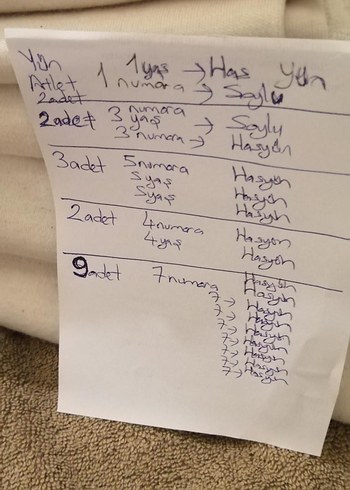 Yün 1 yaş → Has Yün
Atlet 1 numara → Soylu
2 adet
2 adet 3 numara → Soylu
3 yaş
3 numara → Hasyün
3 adet 5 numara Hasyün
5 yaş Hasyün
5 yaş Hasyün
2 adet 4 numara Hasyün
4 yaş Hasyün
9 adet 7 numara Hasyün
Hasyün
7 → Hasyün
7 → Hasyün
7 → Hasyün
7 → Hasyün
7 → Hasyün
7 → Hasyün
7 → Hasyün